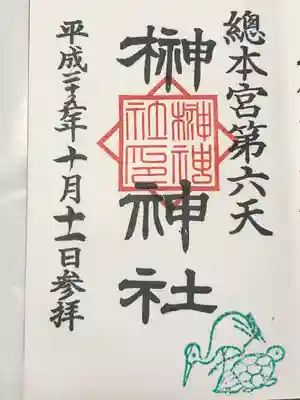 總本宮第六天
榊神社
榊神
社印
平成二十九年十月十一日参拝